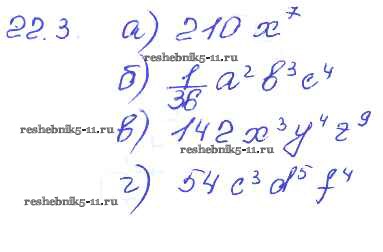 22.3. а) 210 x⁷
reshebnik5-11.ru
б) 1/36 a² b³ c⁴
reshebnik5-11.ru
в) 142 x³ y⁴ z⁹
reshebnik5-11.ru
г) 54 c³ d⁵ f⁴
reshebnik5-11.ru